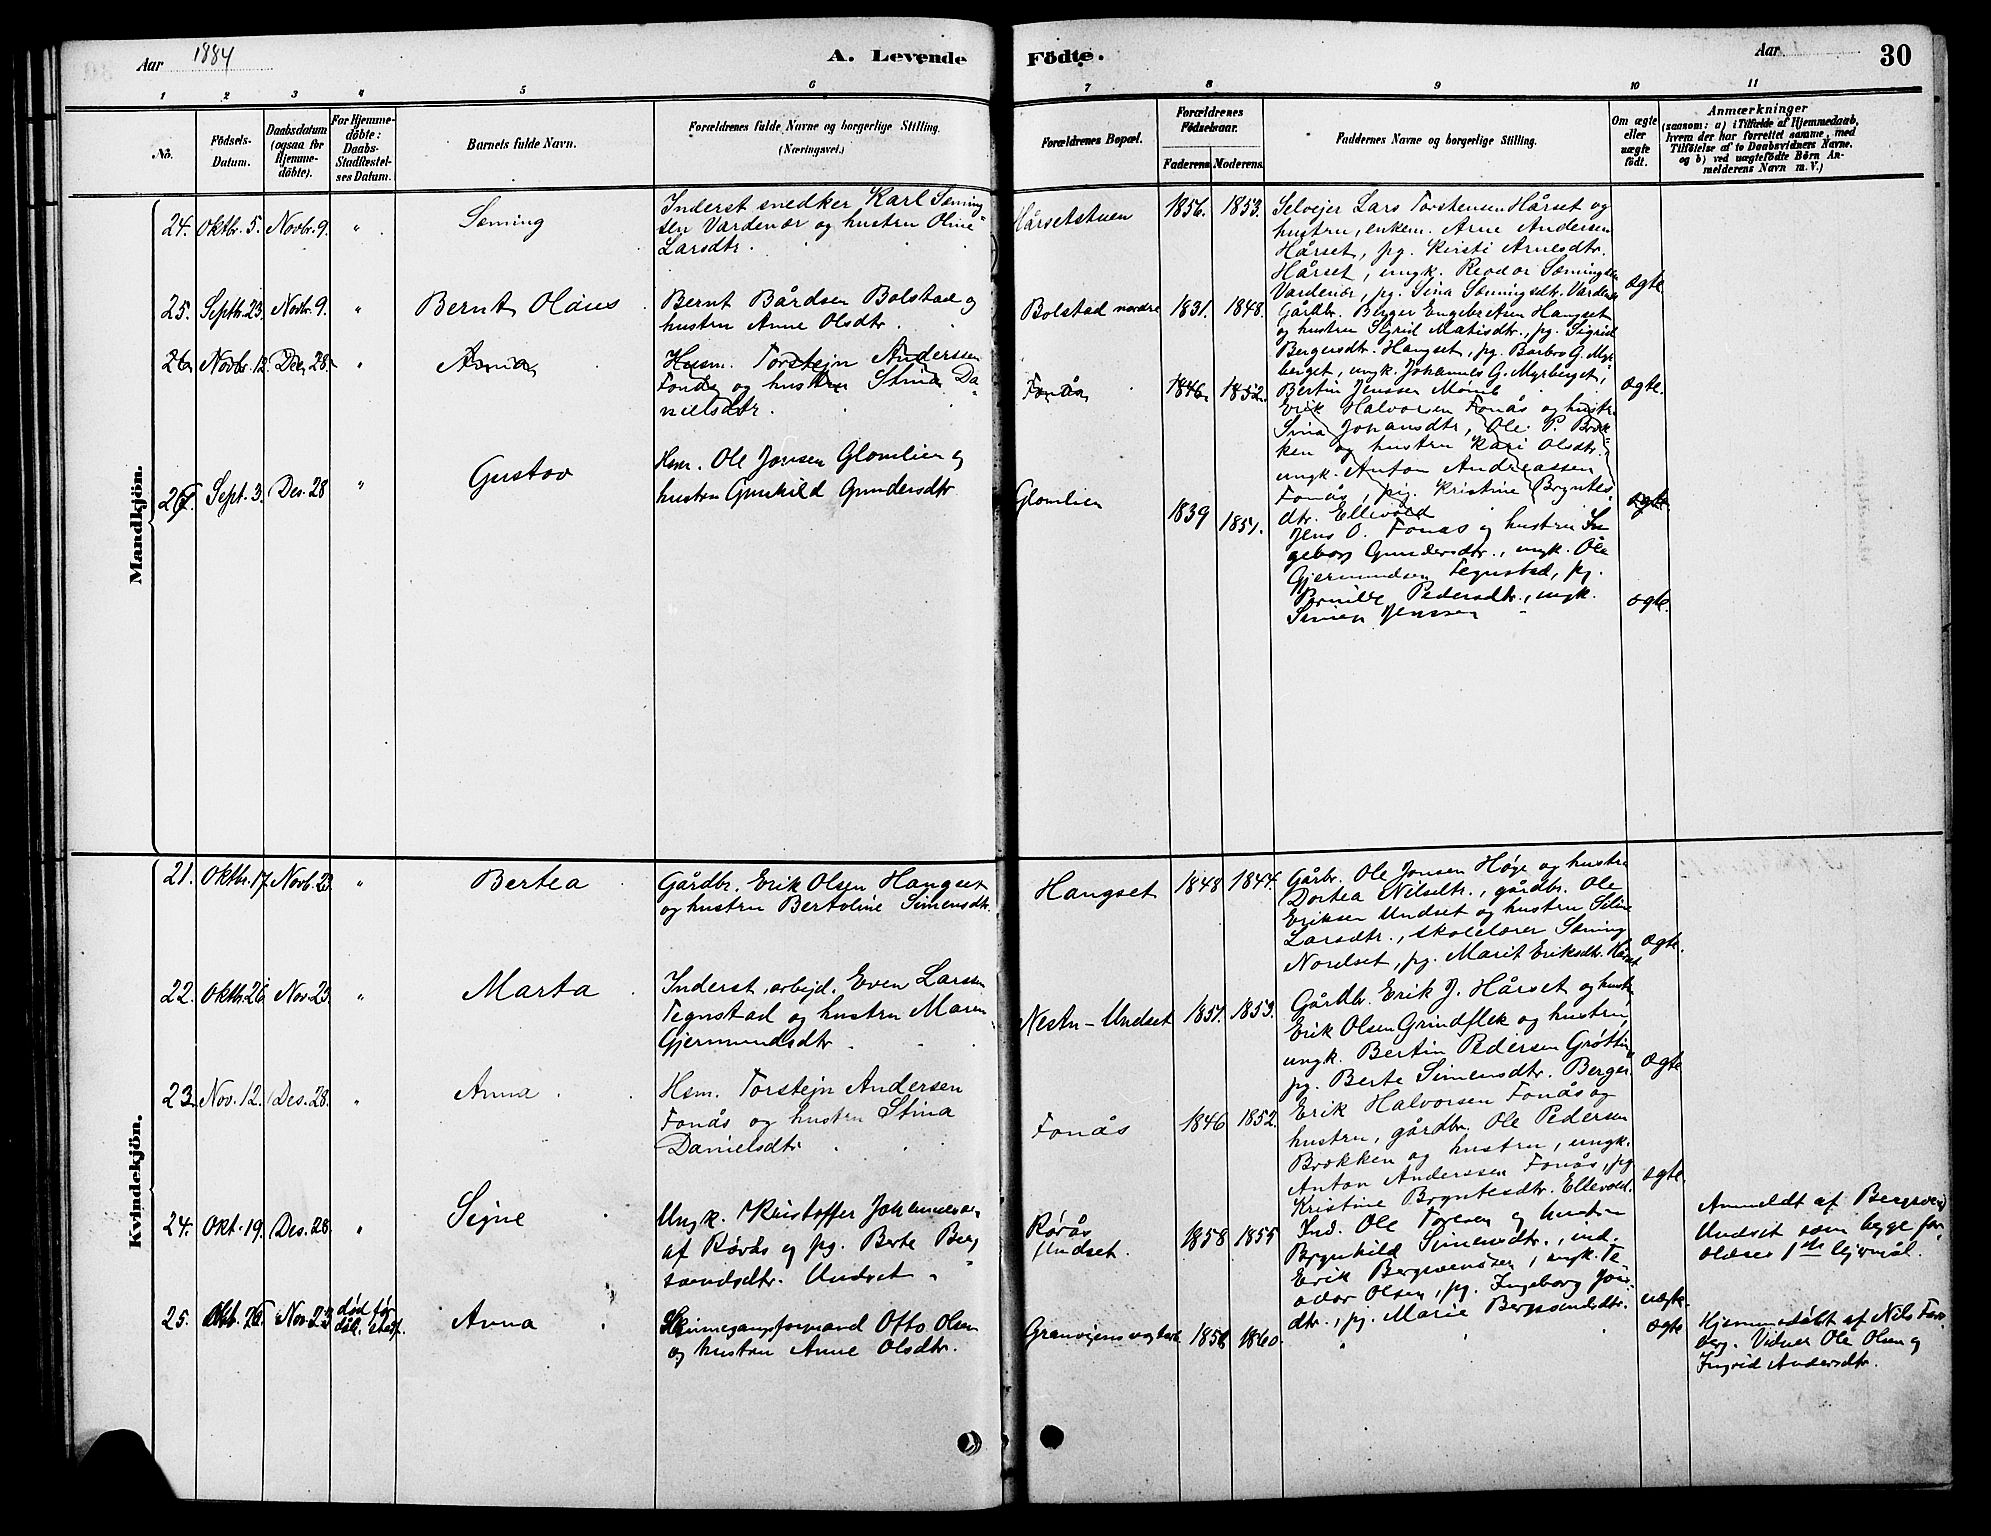 Aar 1884
A. Levende Födte.
Aar
30
1 2 3 4 5 6 7 8 9 10 11
No.
Födsels-
Datum.
Daabsdatum
(ogsaa for
Hjemme-
döbte).
For Hjemme-
döbte:
Daabs-
Stadfæstel-
ses Datum.
Barnets fulde Navn.
Forældrenes fulde Navne og borgerlige Stilling.
(Næringsvei.)
Forældrenes Bopæl.
Forældrenes
Födselsaar.
Faderens. Moderens.
Faddernes Navne og borgerlige Stilling.
Om ægte
eller
uægte
födt.
Anmærkninger
(saasom: a) i Tilfælde af Hjemmedaab,
hvem der har forrettet samme, med
Tilföielse af to Daabsvidners Navne.
og b) ved uægtefödte Börn An-
melderens Navn m. V.)
Mandkjön.
24. Oktbr. 5. Novbr. 9. " Sæming
Inderst snedker Karl Sæming-
sen Vardenær og hustru Oline
Larsdtr.
Hårsetstuen 1856. 1853.
Selvejer Lars Torstensen Hårset og
hustru, enkem. Arne Andersen
Hårset, pg. Kirsti Arnesdtr.
Hårset, ungk. Reodor Sæmingsen
Vardenær, pg. Sina Sæmingsdtr. Vardenær
ægte
25. Septbr. 23. Novbr. 9. " Bernt Olaus
Bernt Bårdsen Bolstad og
hustru Anne Olsdtr.
Bolstad nordre 1831. 1848.
Gårdbr. Berger Engebretsen Hangset
og hustru Sigrid Matisdtr., pg. Sigrid
Bergersdtr. Hangset, pg. Barbro G. Myr
berget, ungk. Johannes G. Myrberget,
Bertin Jenssen Momb
ægte.
26 Novbr. 12. Des. 28. " Anna
Husm. Torstejn Anderssen
Fonås og hustru Stina Da-
nielsdtr.
Fonås 1846 1852.
Erik Halvorsen Fonås og hustr.
Sina Johansdtr., Ole P. Brok-
ken og hustru Kari Olsdtr.
ungk. Anton Andreassen
Fonås, pig. Kristine Bryntes-
dtr. Ellevold
ægte
26 Sept. 3. Des. 28 " Gustav
Hsm. Ole Jonsen Glomlien og
hustru Gunhild Gundersdtr
Glomlien 1839 1851.
Jens O. Fonås og hustru In
geborg Gundersdtr., ungk. Ole
Gjermundsen Tegnstad, pg.
Pernille Pedersdtr., ungk.
Simen Jenssen
ægte.
Kvindekjön.
21. Oktbr. 17. Novb. 23. " Bertea
Gårdbr. Erik Olsen Hangset
og hustru Bertoline Simensdtr.
Hangset 1848 1844.
Gårbr. Ole Jonsen Høge og hustru
Dortea Nilsdtr., gårdbr. Ole
Eriksen Undset og hustru Seline
Larsdtr., skolelærer Sæming
Nordset, pg. Marit Eriksdtr. Hårset
ægte.
22. Oktbr. 26 Nov. 23. " Marta
Inderst, arbejd. Even Larssen
Tegnstad og hustru Maren
Gjermundsdtr.
Nestu-Undset 1851. 1853.
Gårdbr. Erik J. Hårset og hustru,
Erik Olsen Grindflek og hustru,
ungk. Bertin Pedersen Grøtting
pg. Berte Simensdtr. Berger.
ægte
23. Nov. 12. Des. 28. " Anna
Hsm. Torstejn Andersen
Fonås og hustru Stina
Danielsdtr.
Fonås 1846 1852.
Erik Halvorsen Fonås og
hustru, gårdbr. Ole Pedersen
Brokken og hustru, ungk.
Anton Anderssen Fonås, pg
Kristine Bryntesdtr. Ellevold.
ægte.
24. Okt. 19. Des. 28. " Signe
Ungk. Kristoffer Johannesen
af Rørås og pg. Berte Berg
svendsdtr. Undset
Rørås
Undset. 1858 1855
Ind. Ole Toresen og hustru
Brynhild Simensdtr., ind.
Erik Bergsvendsen, ungk. Te-
odor Olsen, pg. Ingeborg Jons-
dtr., pg. Marie Bergsvendsdtr.
uægte.
Anmeldt af Bergsvend
Undset som begge for-
ældres 1ste lejermål.
25. Okt. 26 Nov. 23 død før
dåb. stadf. Anna
Skinnegangsformand Otto Olsen
og hustru Anne Olsdtr.
1856 1860. "
ægte
Hjemmedøbt af Nils
berg. Vidner Ole Olsen og
Ingrid Andersdtr.